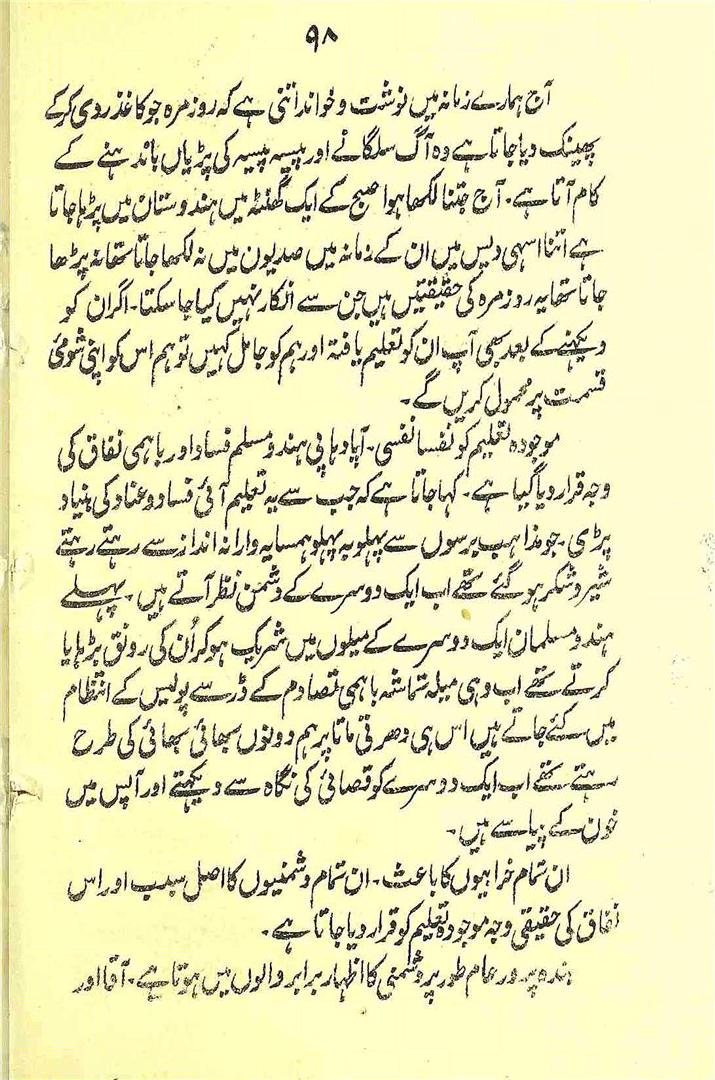 ۹۸
آج ہمارے زمانہ میں نوشت و خواند اتنی ہے کہ روزمرہ جو کاغذ ردی کرکے
پھینک دیا جاتا ہے وہ آگ سلگانے اور پیسہ پیسہ کی پڑیاں باندھنے کے
کام آتا ہے۔ آج جتنا لکھا ہوا صبح کے ایک گھنٹہ میں ہندوستان میں پڑھا جاتا
ہے اتنا اسہی دیس میں ان کے زمانہ میں صدیوں میں نہ لکھا جاتا تھا نہ پڑھا
جاتا تھا یہ روزمرہ کی حقیقتیں ہیں جن سے انکار نہیں کیا جا سکتا۔ اگر ان کو
دیکھنے کے بعد بھی آپ ان کو تعلیم یافتہ اور ہم کو جاہل کہیں تو ہم اس کو اپنی شومئ
قسمت پر محمول کریں گے۔
موجودہ تعلیم کو نفسا نفسی۔ آپا دہاپی ہندو مسلم فساد اور باہمی نفاق کی
وجہ قرار دیا گیا ہے۔ کہا جاتا ہے کہ جب سے یہ تعلیم آئی فساد و عناد کی بنیاد
پڑی۔ جو مذاہب برسوں سے پہلو بہ پہلو ہمسایہ وارانہ انداز سے رہتے رہتے
شیر و شکر ہو گئے تھے اب ایک دوسرے کے دشمن نظر آتے ہیں۔ پہلے
ہندو مسلمان ایک دوسرے کے میلوں میں شریک ہو کر اُن کی رونق بڑہایا
کرتے تھے اب وہی میلہ تماشہ باہمی تصادم کے ڈر سے پولیس کے انتظام
میں کئے جاتے ہیں اس ہی دھرتی ماتا پر ہم دونوں بھائی بھائی کی طرح
رہتے تھے اب ایک دوسرے کو قصائی کی نگاہ سے دیکھتے اور آپس میں
خون کے پیاسے ہیں۔
ان تمام خرابیوں کا باعث۔ ان تمام دشمنیوں کا اصل سبب اور اس
نفاق کی حقیقی وجہ موجودہ تعلیم کو قرار دیا جاتا ہے۔
بندہ پرور عام طور پر دشمنی کا اظہار برابر والوں میں ہوتا ہے۔ آقا اور